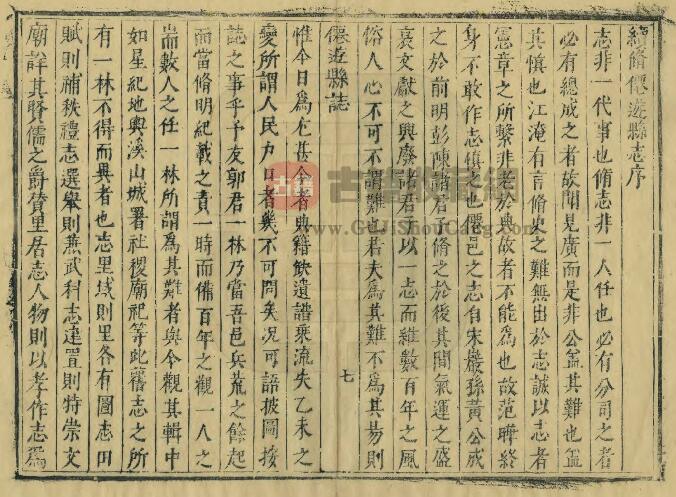 續脩僊遊縣志序
志非一代事也脩志非一人任也必有分司之者
必有總成之者故聞見廣而是非公盖其難也盖
其慎也江淹有言脩史之難無出於志誠以志者
憲章之所繫非老於典故者不能為也故范曄終
身不敢作志慎之也僊邑之志自宋嚴孫黃公成
之於前明彭陳諸君子脩之於後其間氣運之盛
衰文獻之興廢諸君子以一志而維數百年之風
俗人心不可不謂難也若夫為其難不為其易則
僊遊縣誌
七
惟今日為尤甚今者典籍缺遺譜乘流失乙未之
變所謂人民力口者幾不可問矣况可語披圖按
誌之事乎予友郭君一林乃當吾邑兵荒之餘起
而當脩明紀載之責一時而備百年之觀一人之
耑數人之任一林所謂為其難者與今觀其輯中
如星紀地輿溪山城署社稷廟祀等此舊志之所
有一林不得而異者也志里域則里各有圖志田
賦則補秩禮志選舉則燕武科志建置則特崇文
廟詳其賢儒之爵贊里居志人物則以孝作志為
古籍
www.GuJiShouCang.com